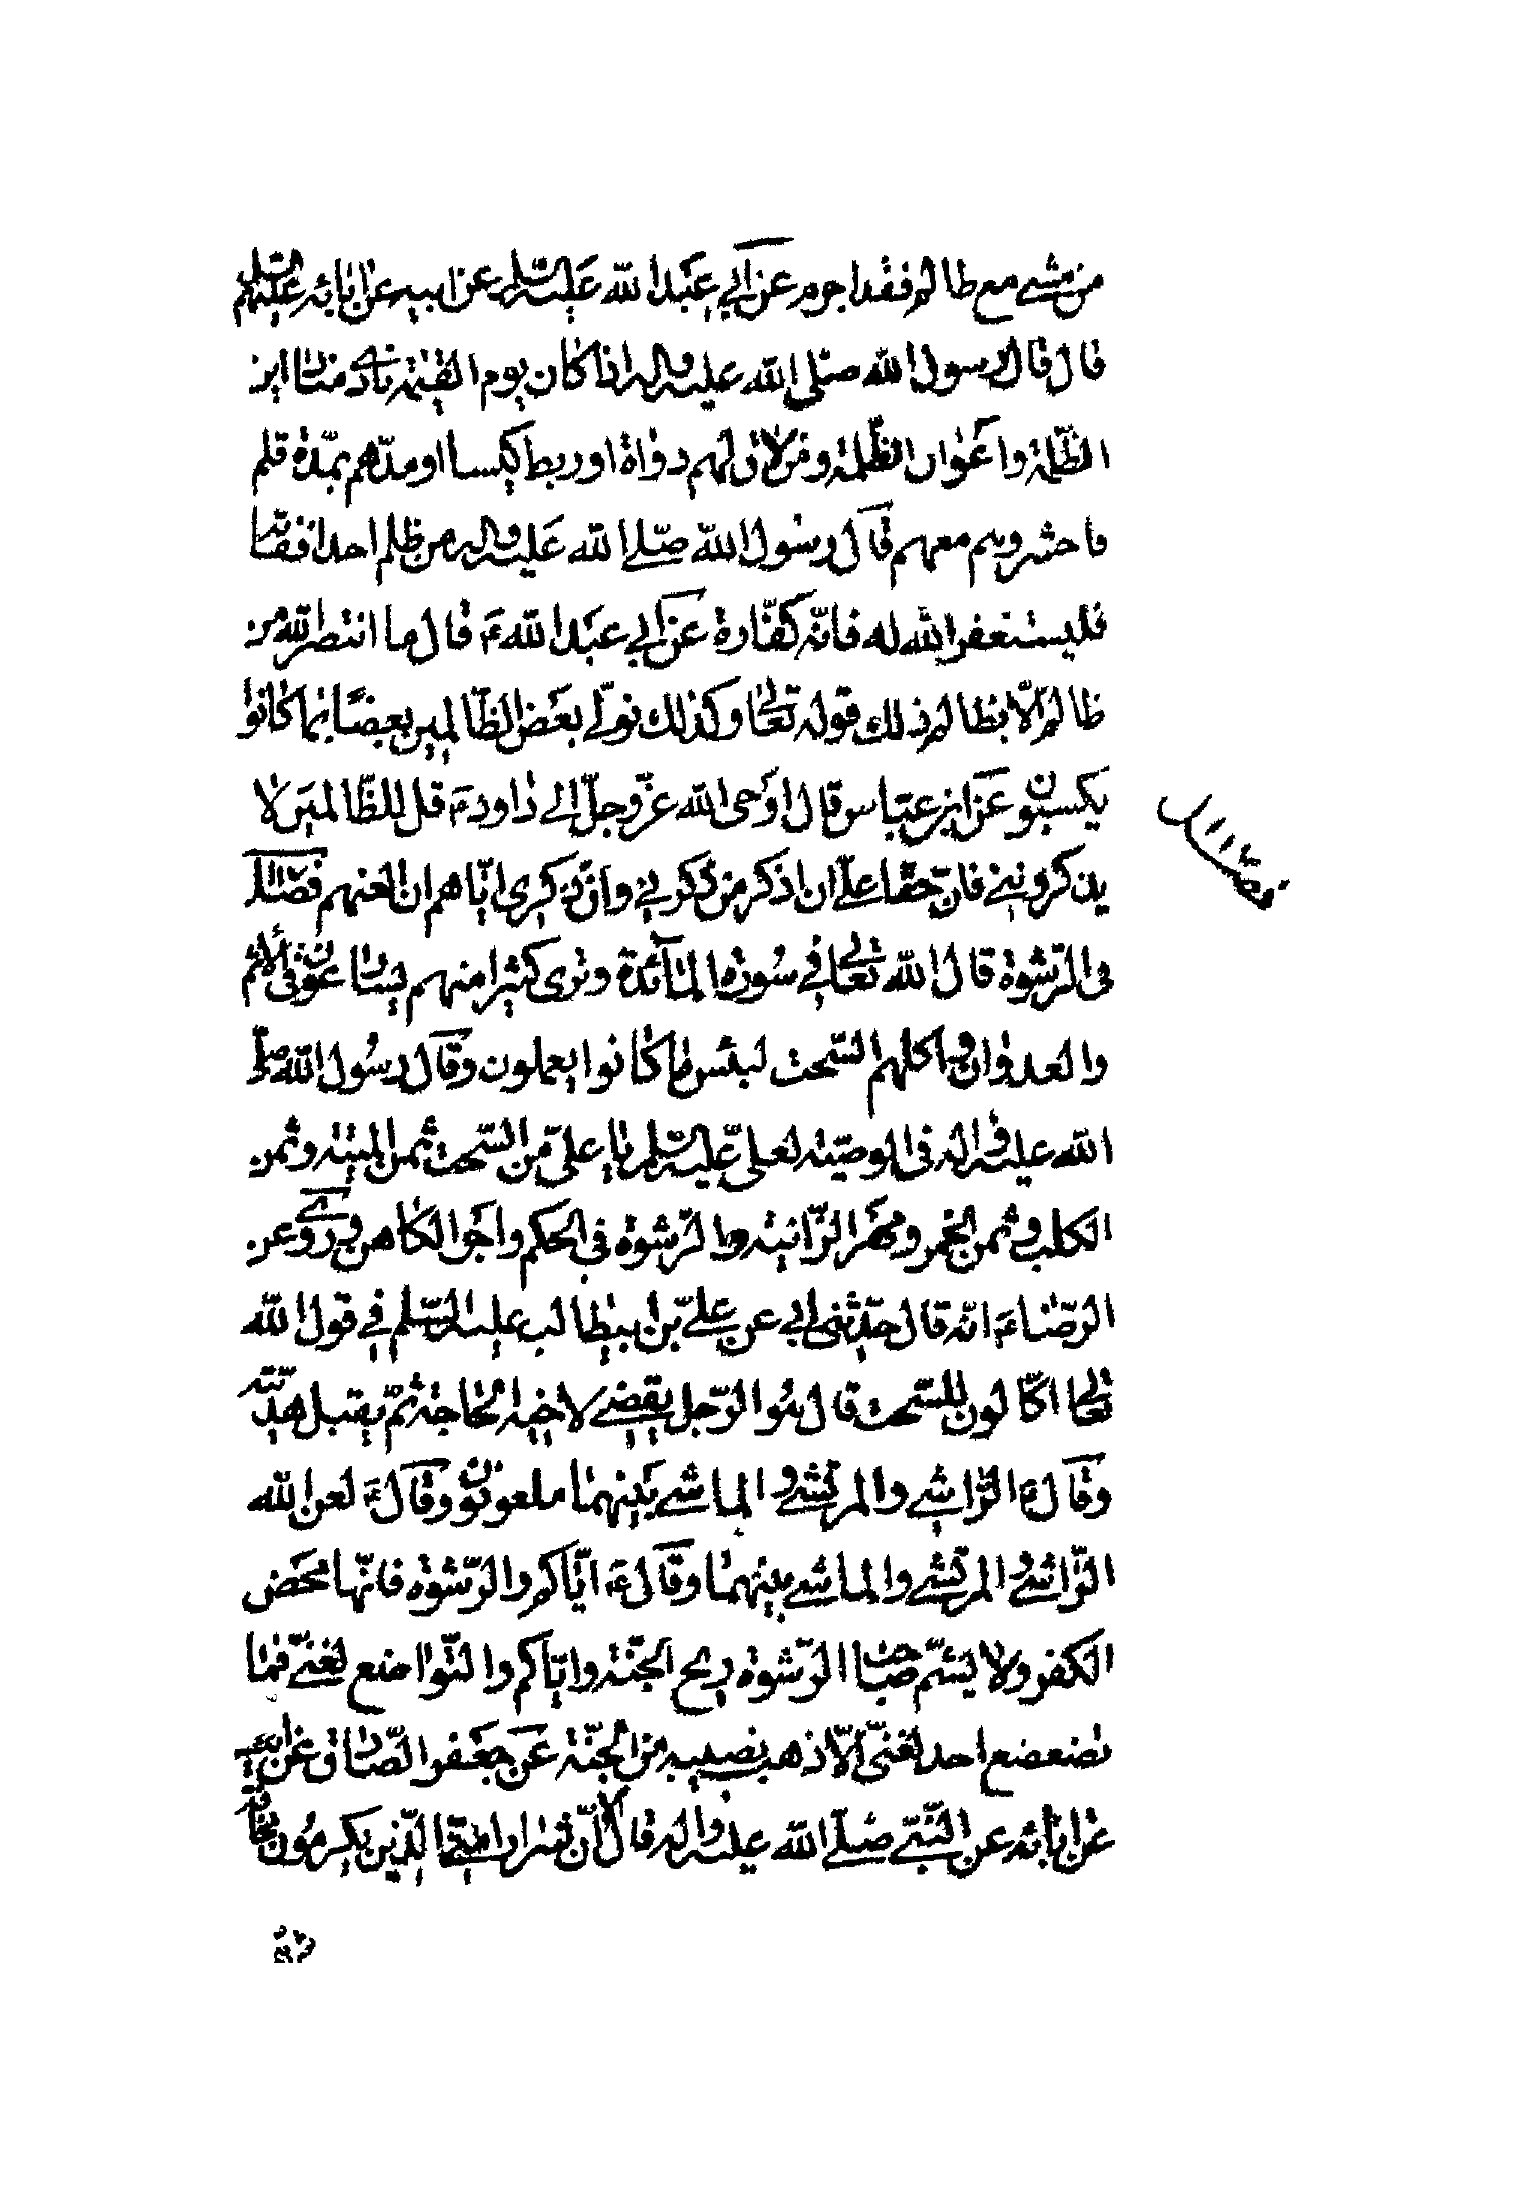 من مشى مع ظالم فقد اجرم عن ابي عبد الله عليه السلم عن ابيه عن ابائه عليهم السلم
قال قال رسول الله صلى الله عليه واله اذا كان يوم القيمة نادى مناد اين
الظلمة واعوان الظلمة ومن لاق لهم دواة او ربط كيسا او مدهم بمدة قلم
فاحشروهم معهم قال رسول الله صلى الله عليه واله من ظلم احدا ففاته
فليستغفر الله له فانه كفارة عن ابي عبد الله ع قال ما انتصر الله من
ظالم الا بظالم ذلك قوله تعالى وكذلك نولي بعض الظالمين بعضا بما كانوا
يكسبون عن ابن عباس قال اوحى الله عز وجل الى داود ع قل للظالمين لا
يذكرونني فان حقا علي ان اذكر من ذكرني وان ذكرى اياهم ان العنهم فصل
فصل
في الرشوة قال الله تعالى في سورة المائدة وترى كثيرا منهم يسارعون في الاثم
والعدوان واكلهم السحت لبئس ما كانوا يعملون وقال رسول الله صلى
الله عليه واله في الوصية لعلي عليه السلم يا علي من السحت ثمن الميتة وثمن
الكلب وثمن الخمر ومهر الزانية والرشوة في الحكم واجر الكاهن وروى عن
الرضا ع انه قال حدثني ابي عن علي بن ابيطالب عليه السلم في قول الله
تعالى اكالون للسحت قال هو الرجل يقضي لاخيه الحاجة ثم يقبل هديته
وقال ع الراشي والمرتشي والماشي بينهما ملعونون وقال ع لعن الله
الراشي والمرتشي والماشي بينهما وقال ع اياكم والرشوة فانها محض
الكفر ولا يشم صاحب الرشوة ريح الجنة واياكم والتواضع لغني فما
تضعضع احد لغني الا ذهب نصيبه من الجنة عن جعفر الصادق عن ابيه
عن ابائه عن النبي صلى الله عليه واله قال الا ان شرار امتي الذين يكرمون مخافة